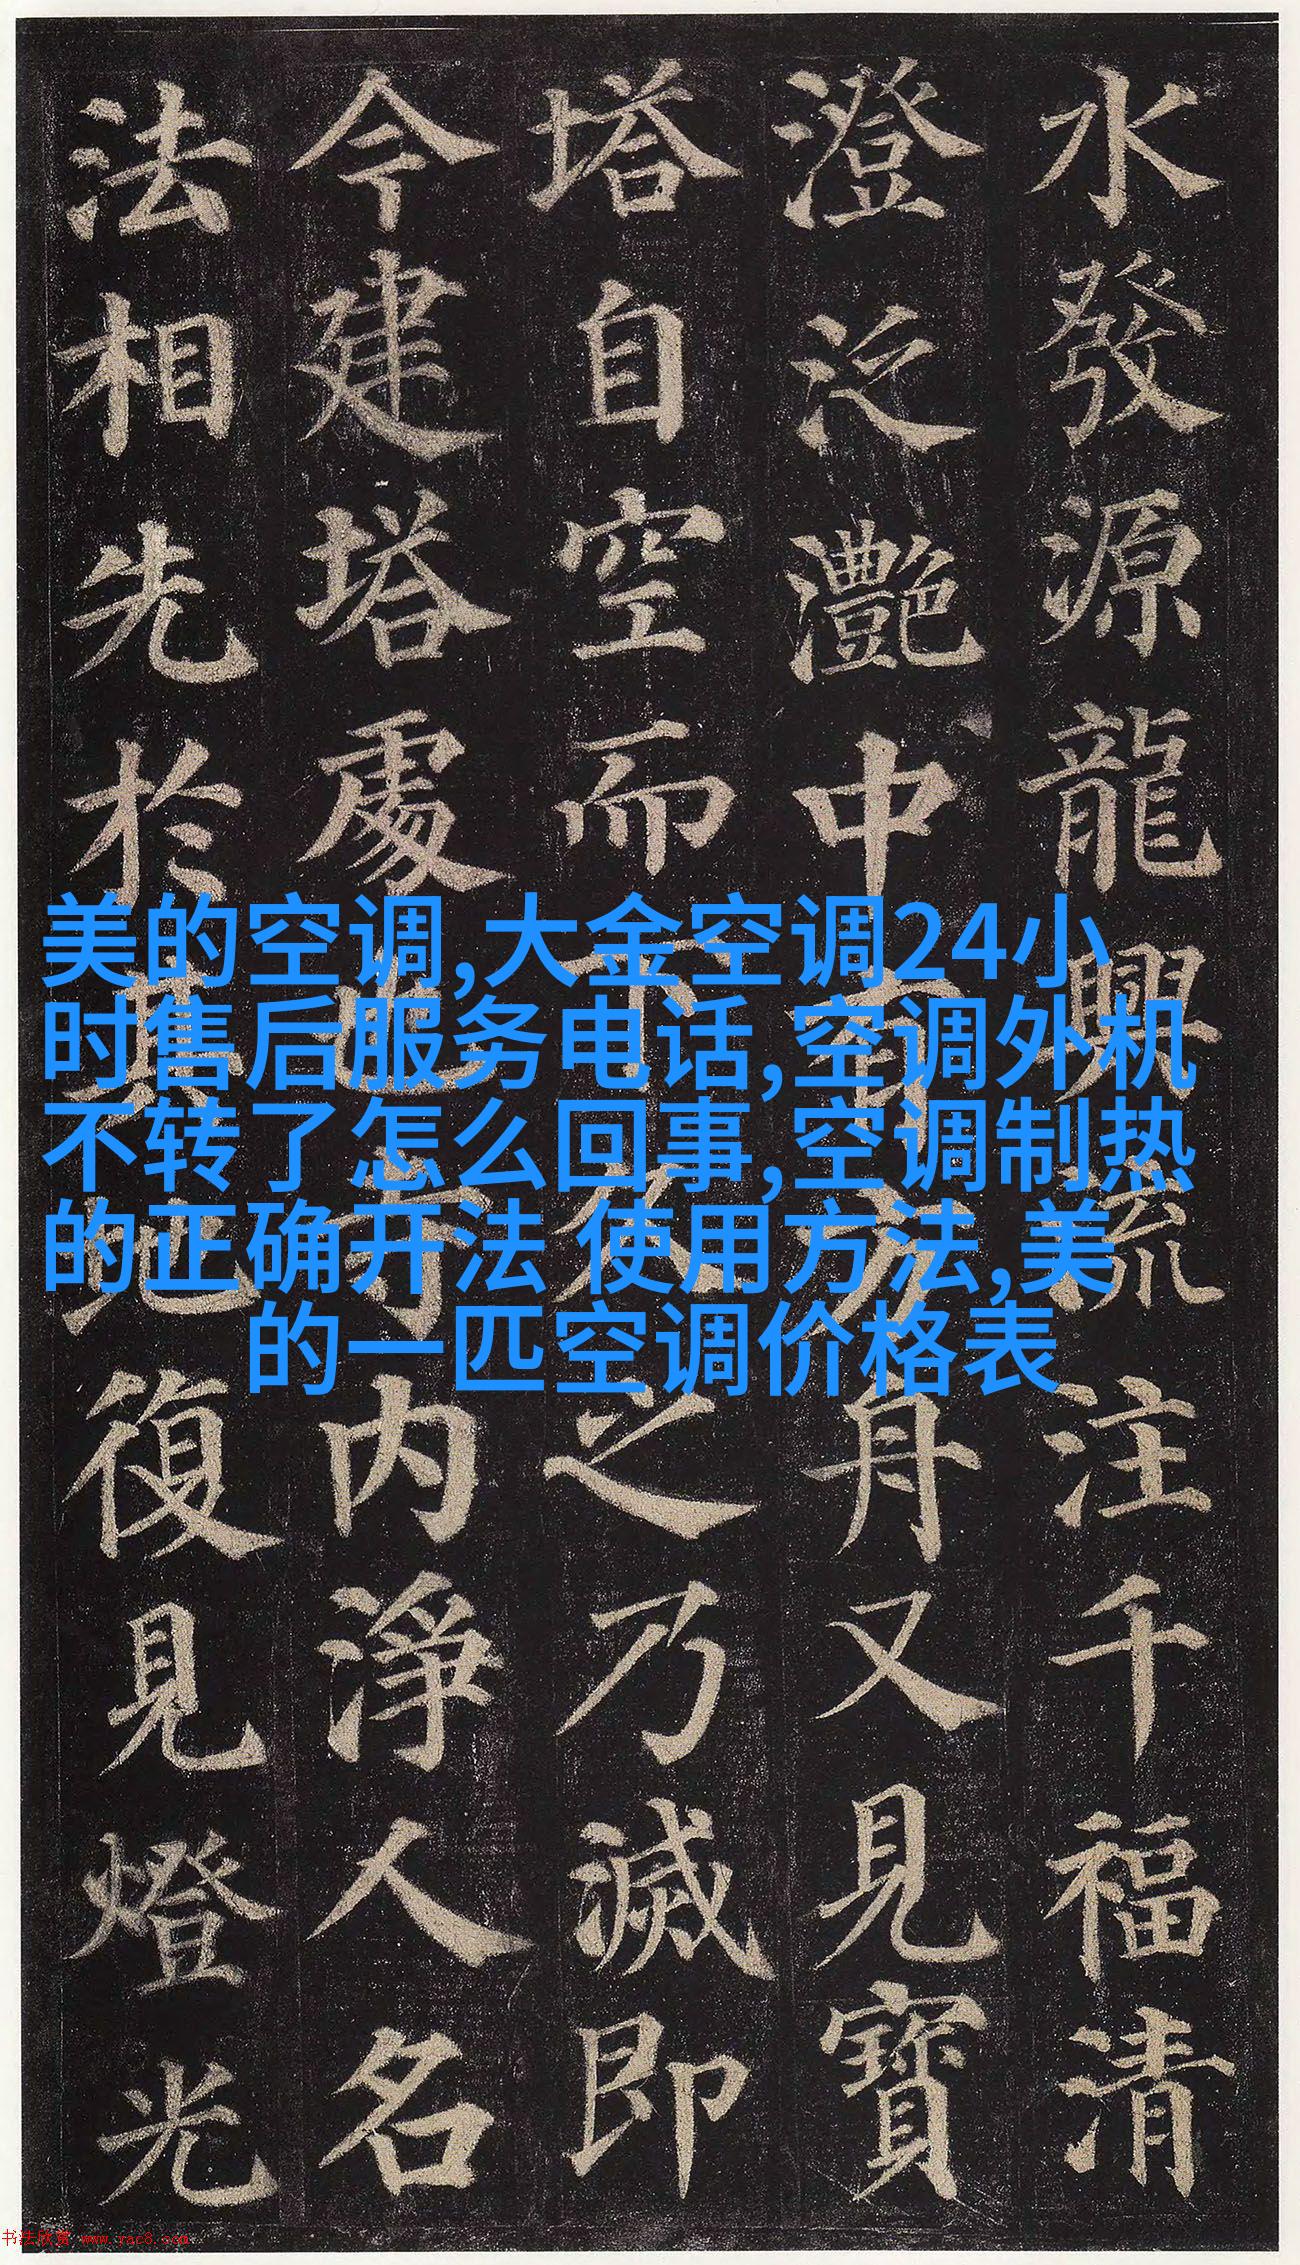 水發源龍興流注千福清
澄泛灧中有方舟又見寶
塔自空而下久之乃滅即
今建塔處也寺内淨人名
法相先於其地復見燈光
美的空调,大金空调24小
时售后服务电话,空调外机
不转了怎么回事,空调制热
的正确开法 使用方法,美
的一匹空调价格表
书法欣赏 www.yac8.com